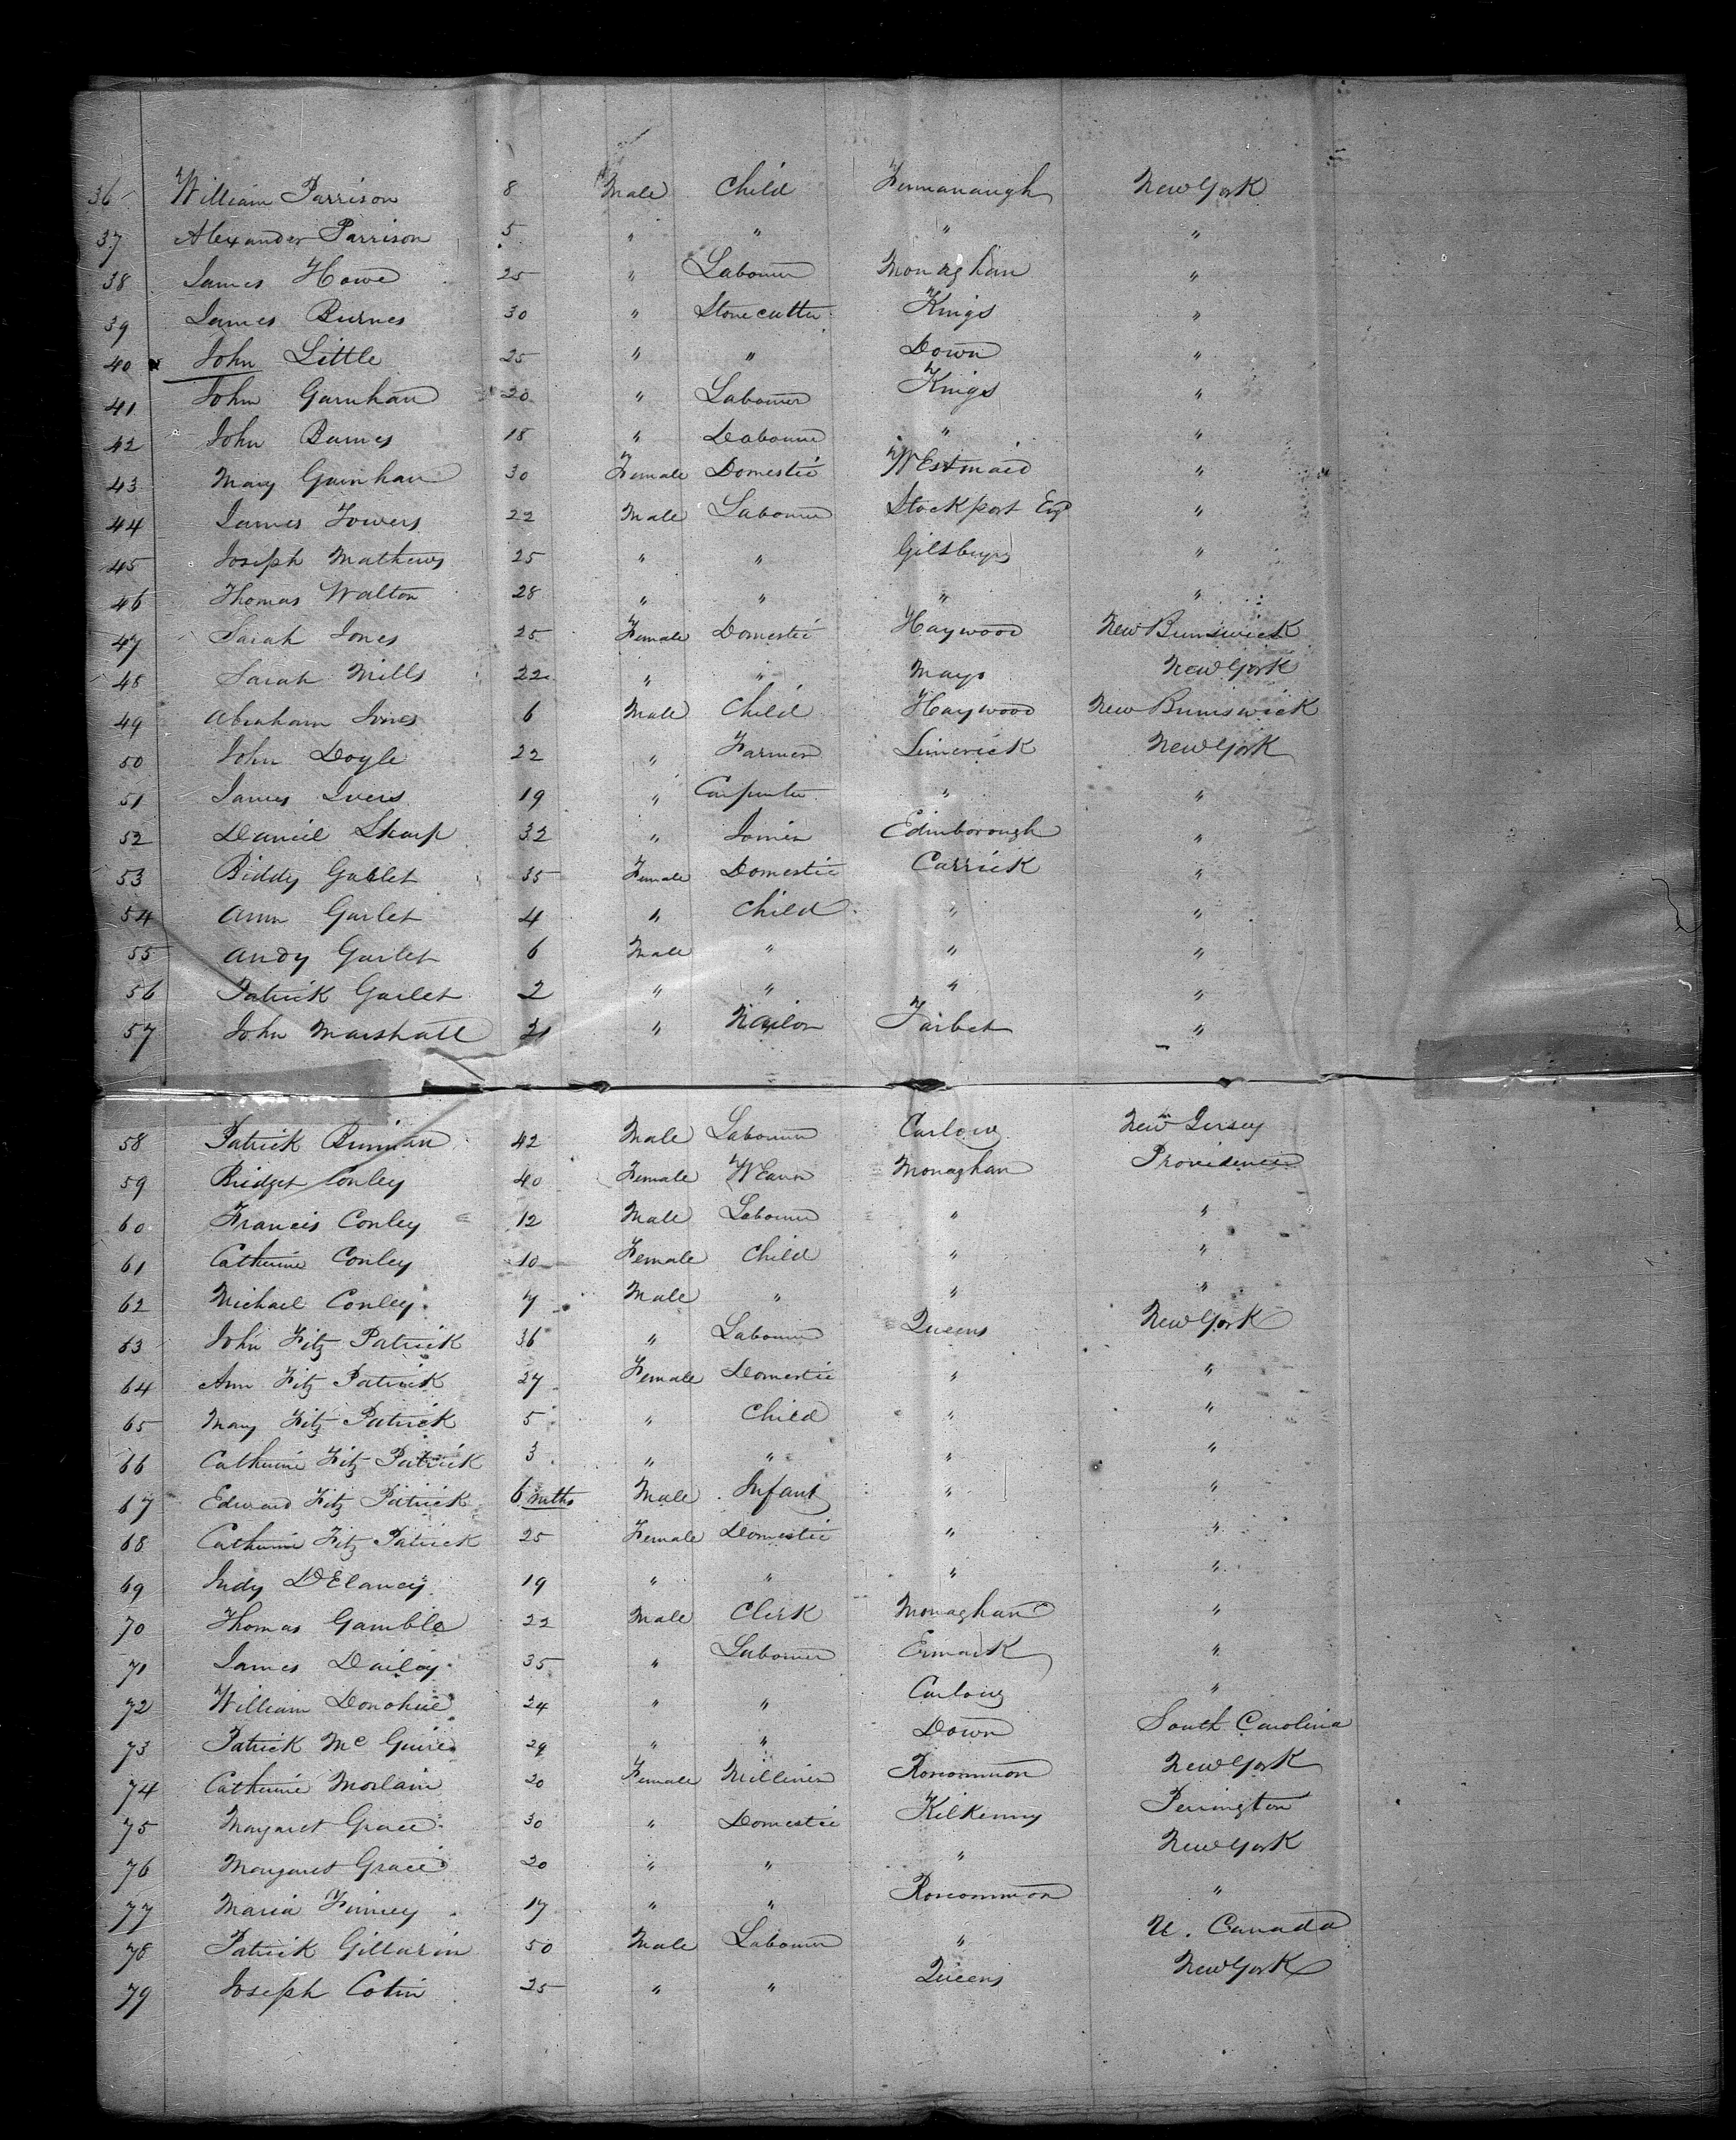 36 William Parrison 8 Male Child Fermanaugh New York
37 Alexander Parrison 5 " " " "
38 James Howe 25 " Labourer Monaghan "
39 James Burnes 30 " Stone cutter Kings "
40 John Little 25 " " Down "
41 John Garnhan 20 " Labourer Kings "
42 John Barnes 18 " Labourer " "
43 Mary Garnhan 30 Female Domestic WEstmaid "
44 James Towers 22 Male Labourer Stockport Eng "
45 Joseph Mathews 25 " " "
46 Thomas Walton 28 " " " "
47 Sarah Jones 25 Female Domestic Haywood New Brunswick
48 Sarah Mills 22 " " Mayo New York
49 Abraham Jones 6 Male Child Haywood New Brunswick
50 John Doyle 22 " Farmer Limerick New York
51 James Ivers 19 " Carpenter " "
52 Daniel Sharp 32 " Joiner Edinborough "
53 Biddy Garlet 35 Female Domestic Carrick "
54 Ann Garlet 4 " Child " "
55 Andy Garlet 6 Male " " "
56 Patrick Garlet 2 " " " "
57 John Marshall 21 " Nailor Tarbet "
58 Patrick 42 Male Labourer Carlow New Jersey
59 Bridget Conley 40 Female WEaver Monaghan Providence
60 Francis Conley 12 Male Labourer " "
61 Catherine Conley 10 Female Child " "
62 Michael Conley 7 Male " " "
63 John Fitz Patrick 36 " Labourer Queens New York
64 Ann Fitz Patrick 27 Female Domestic " "
65 Mary Fitz Patrick 5 " Child " "
66 Catherine Fitz Patrick 3 " " " "
67 Edward Fitz Patrick 6 mths Male Infant " "
68 Catherine Fitz Patrick 25 Female Domestic " "
69 Judy DElancy 19 " " " "
70 Thomas Gamble 22 Male Clerk Monaghan "
71 James Dailey 35 " Labourer Ermack "
72 William Donohue 24 " " Carlow "
73 Patrick Mc Guire 29 " " Down South Carolina
74 Catherine Morlain 20 Female Milliner Roscommon New York
75 Margaret Grace 30 " Domestic Kilkenny Perrington
76 Margaret Grace 20 " " " New York
77 Maria Finney 17 " " Roscommon "
78 Patrick Gillarin 50 Male Labourer " U. Canada
79 Joseph Cotin 25 " " Queens New York